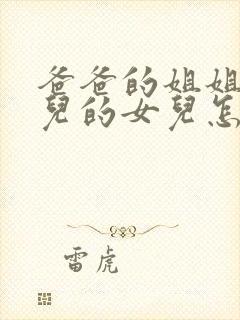 爸爸的姐姐
兒的女兒怎
雷虎